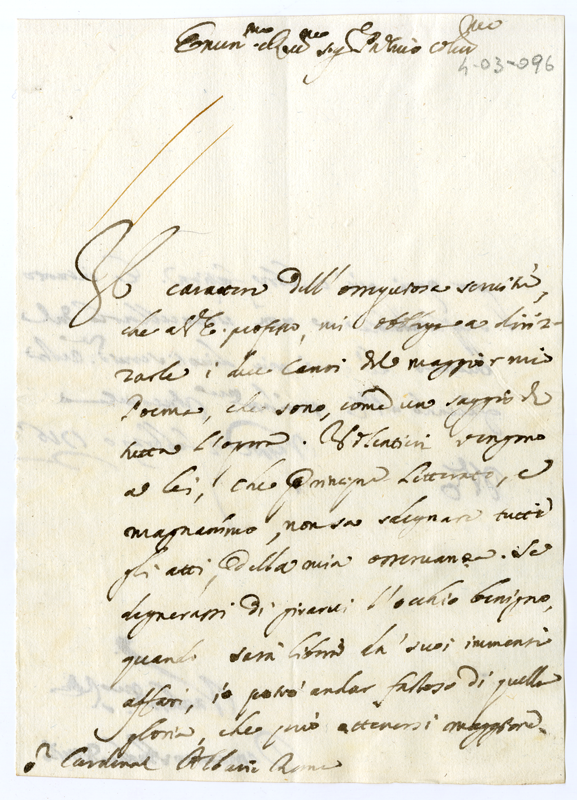 Emin.mo e Rev.mo Sig.r P.rone Col.mo
4-03-096
Il carattere dell'ossequiosa servitù,
che a V.E. professo, mi obbliga a diriz-
zarle i due Canti del maggior mio
Poema, che sono, come un saggio di
tutta l'opera. Volentieri vengono
a lei, che Principe Letterato, e
magnanimo, non sa sdegnare tutti
gli atti, della mia osservanza. Se
degnerassi di girarvi l'occhio benigno,
quando sarà libero da' suoi immensi
affari, io potrò andar fastoso di quella
gloria, che può ottenersi maggiore.
Cardinal Albani Roma